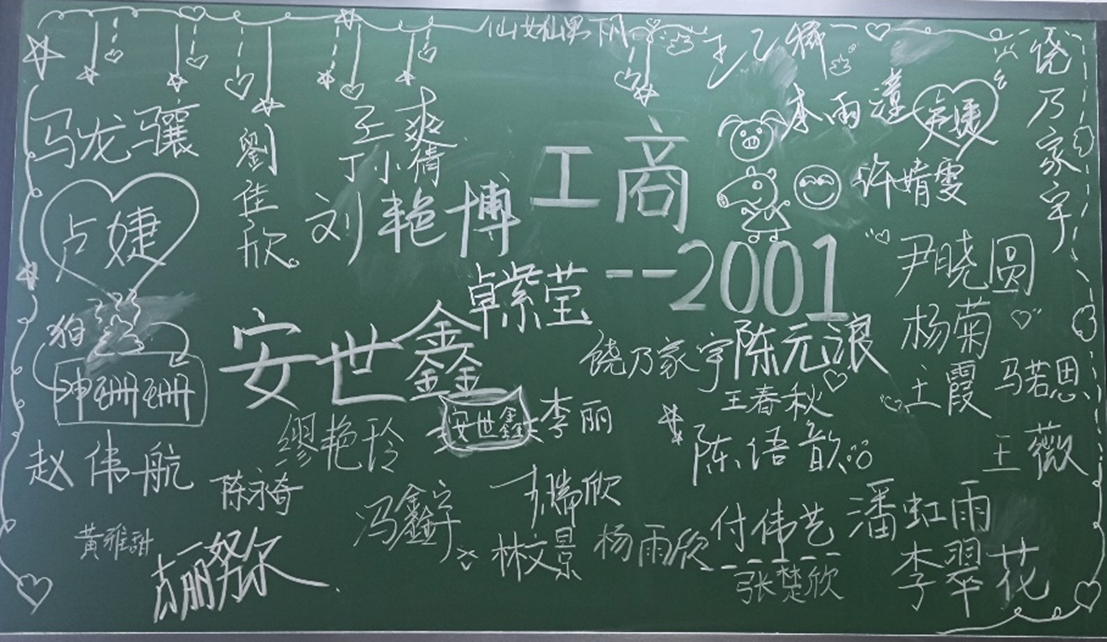 仙女仙男下凡
饶乃家宇
李雨潼
卢婕
马龙骧
劉佳欣
孟爽
丁小倩
工商
许婧雯
卢婕
刘艳博
--2001
尹晓圆
卓紫莹
安世鑫
狗
珊珊
饶乃家宇
陈元浪
杨菊
马若恩
王春秋
王霞
安世鑫
李丽
缪艳玲
陈语歆
王薇
赵伟航
陈永奇
冯鑫宇
林文景
杨雨欣
付伟艺
潘虹雨
黄雅甜
张楚欣
李翠花